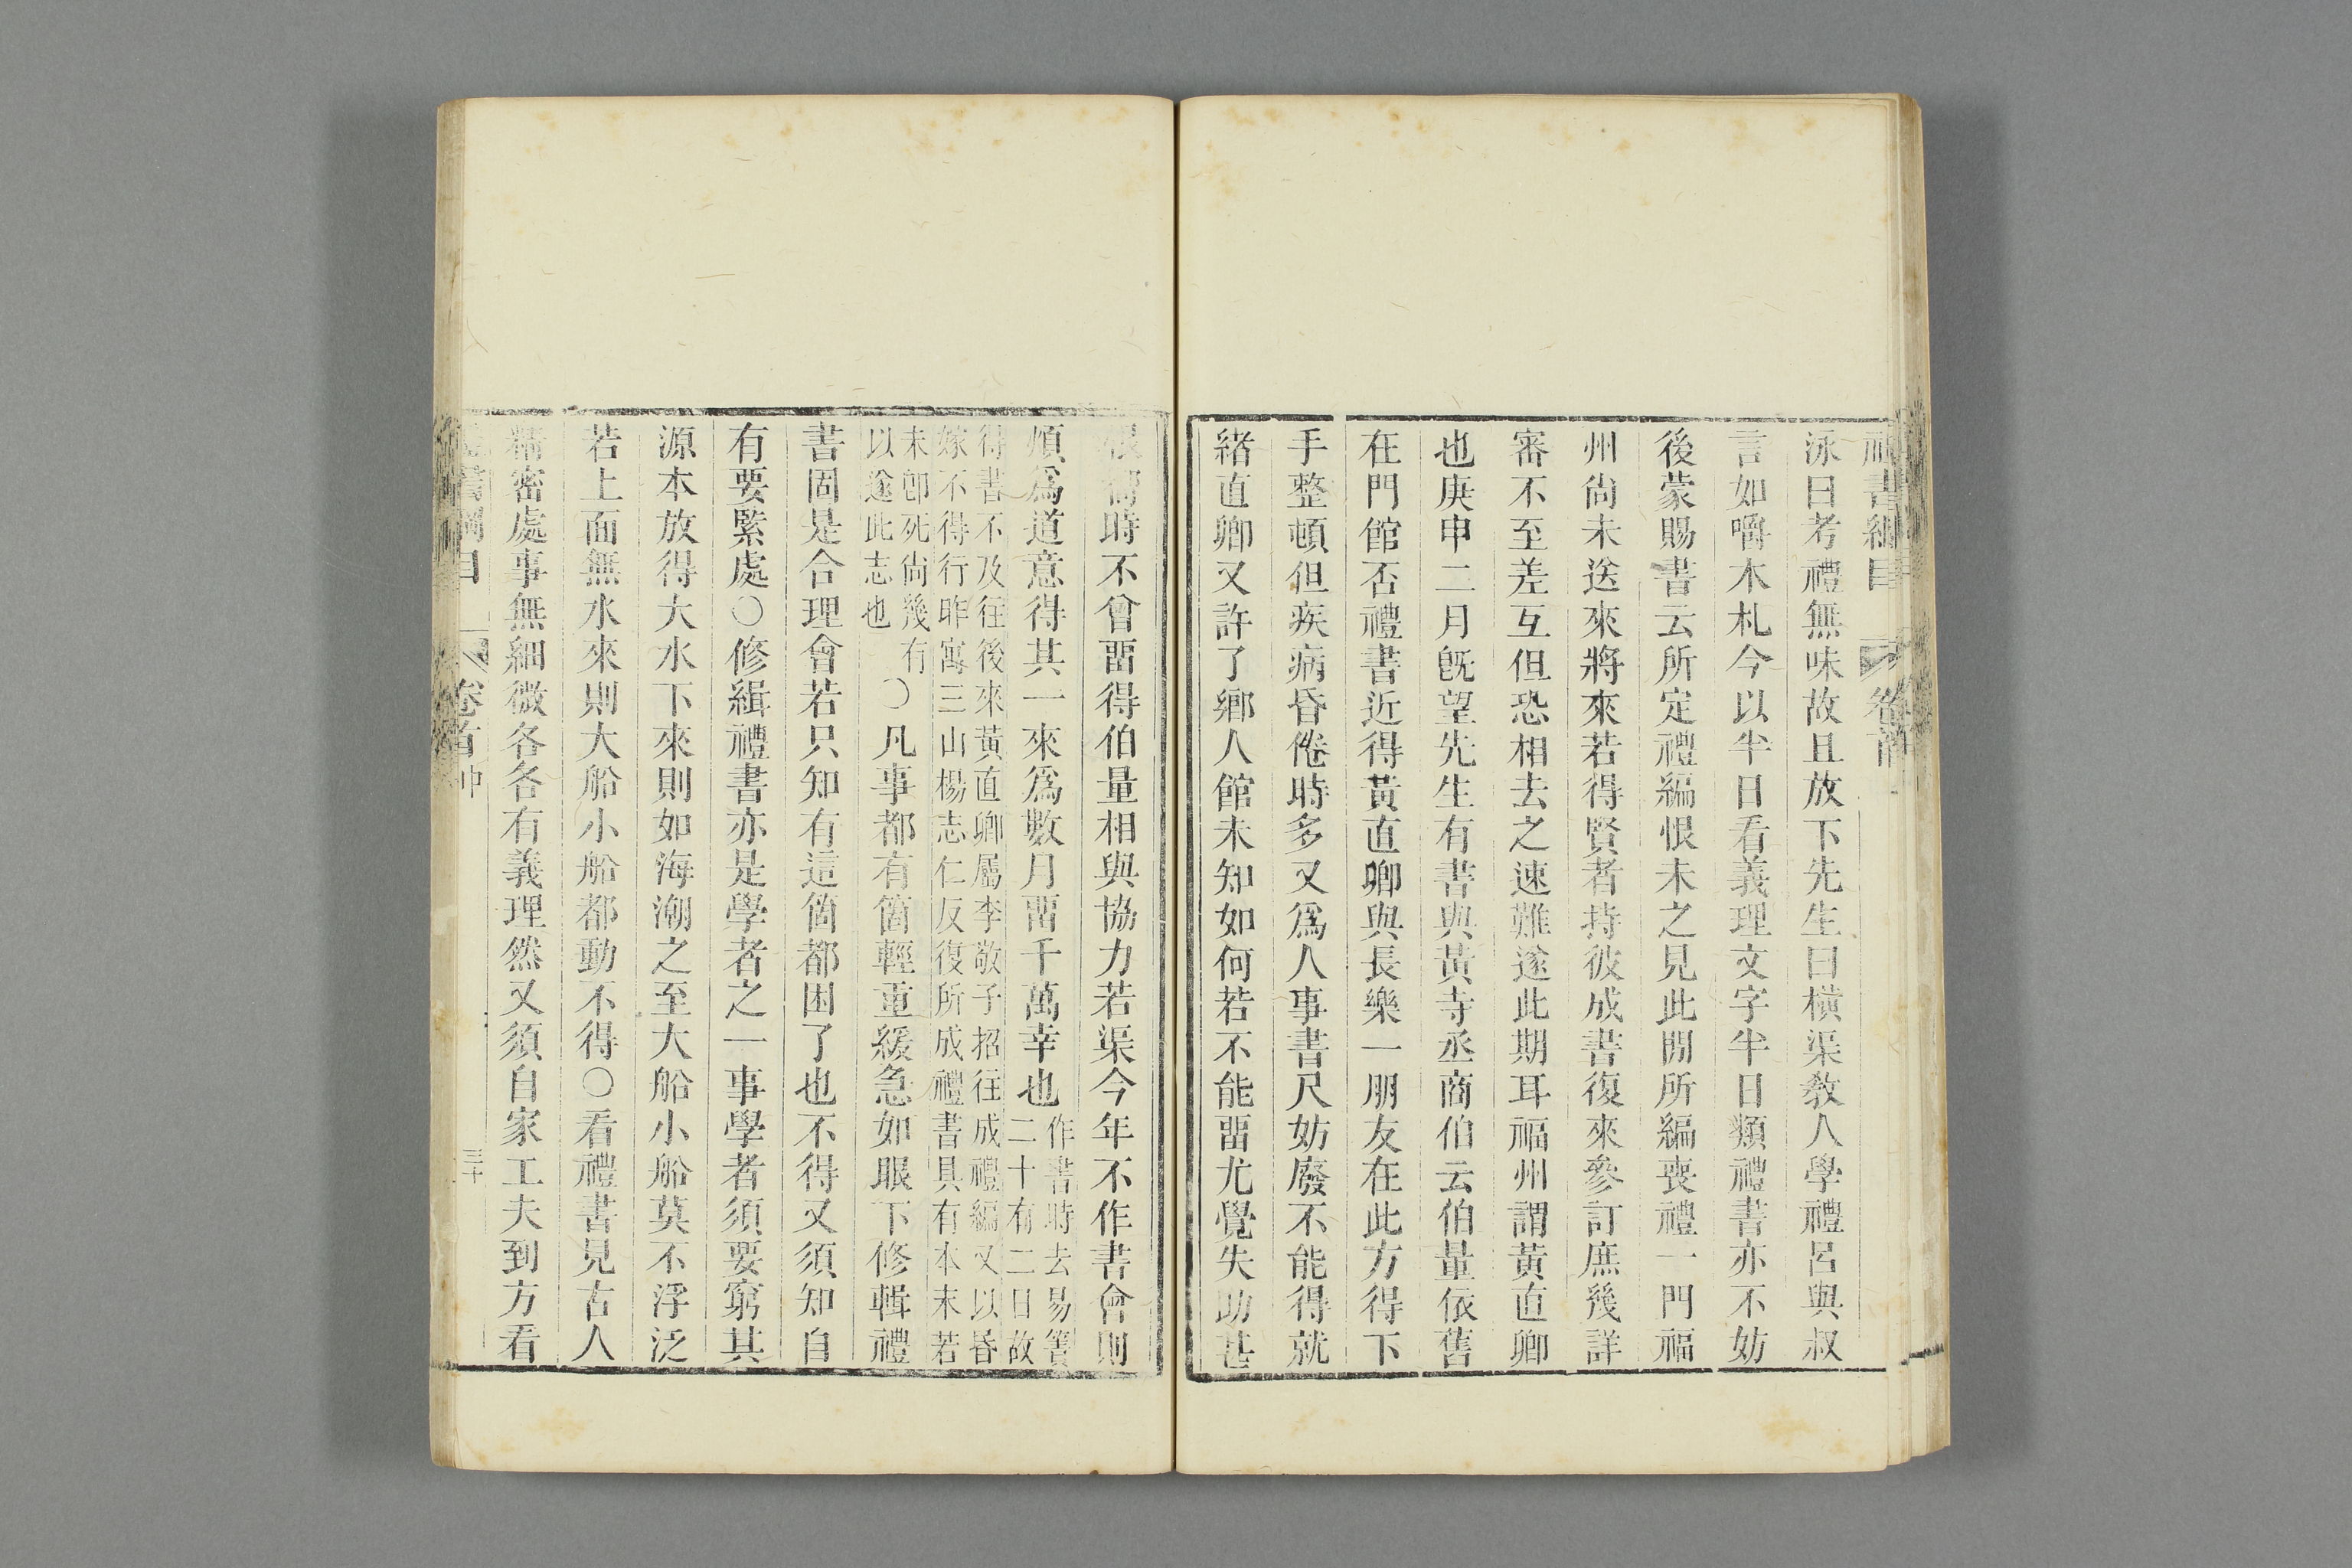 禮書綱目 卷首
泳曰考禮無味故且放下先生曰橫渠教人學禮呂與叔
言如嚼木札今以半日看義理文字半日類禮書亦不妨
後蒙賜書云所定禮編恨未之見此間所編喪禮一門福
州尙未送來將來若得賢者持彼成書復來參訂庶幾詳
審不至差互但恐相去之速難遂此期耳福州謂黃直卿
也庚申二月旣望先生有書與黃寺丞商伯云伯量依舊
在門館否禮書近得黃直卿與長樂一朋友在此方得下
手整頓但疾病昏倦時多又爲人事書尺妨廢不能得就
緖直卿又許了鄕人館未知如何若不能畱尤覺失助甚
恨鄕時不曾畱得伯量相與協力若渠今年不作書會則
煩爲道意得其一來爲數月畱千萬幸也作書時去易簀
二十有二日故
得書不及往後來黃直卿屬李敬子招往成禮編又以昏
嫁不得行昨寓三山楊志仁反復所成禮書具有本末若
未卽死尙幾有
以遂此志也〇凡事都有箇輕重緩急如眼下修輯禮
書固是合理會若只知有這箇都困了也不得又須知自
有要緊處〇修緝禮書亦是學者之一事學者須要窮其
源本放得大水下來則如海潮之至大船小船莫不浮泛
若上面無水來則大船小船都動不得〇看禮書見古人
精密處事無細微各各有義理然又須自家工夫到方看
禮書綱目 卷首中 三十